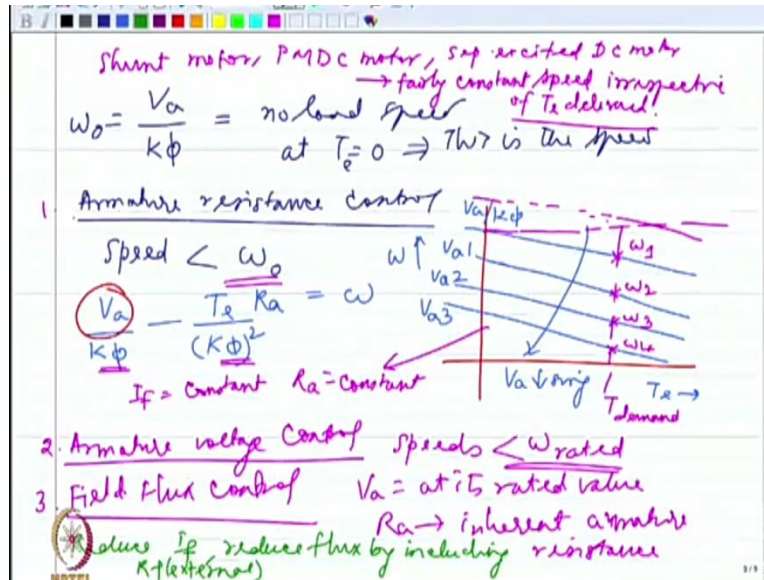 Shunt motor, PMDC motor, sep excited DC motor
→ fairly constant speed irrespective
of Te delivered!
ω₀ = Va / Kϕ = no load speed
at Te = 0 ⇒ This is the speed
1. Armature resistance control
Speed < ω₀
Va / Kϕ − Te Ra / (Kϕ)² = ω
If = constant Ra = constant
Va/Kϕ
ω ↑
Va1
Va2
Va3
ω1
ω2
ω3
ω4
Va ↓sing
Te →
Tdemand
2. Armature voltage control speeds < ωrated
3. Field Flux control Va = at its rated value
Ra → inherent armature
resistance
Reduce If reduce flux by including
Rf(external)
3/3